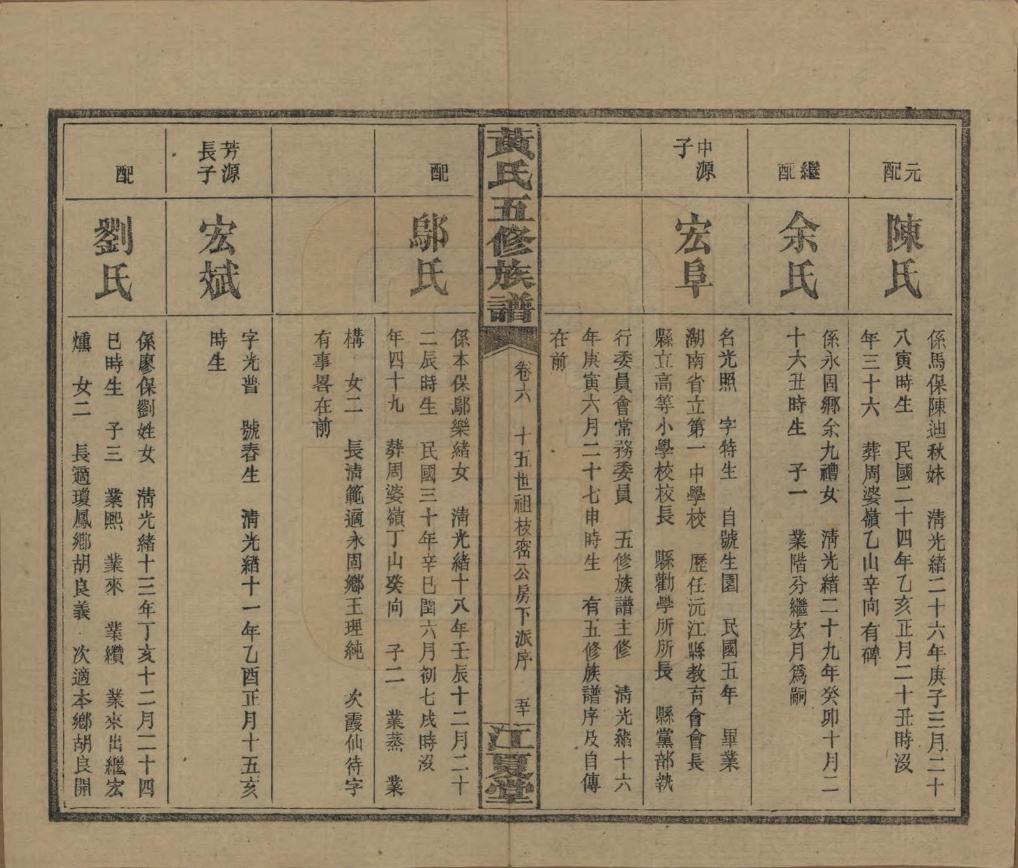 元配
陳氏
係馬保陳迪秋妹　清光緒二十六年庚子三月二十
八寅時生　民國二十四年乙亥正月二十丑時沒
年三十六　葬周婆嶺乙山辛向有碑
繼配
余氏
係永固鄉余九禮女　清光緒二十九年癸卯十月二
十六丑時生　子一　業階分繼宏月爲嗣
中源子
宏阜
名光照　字特生　自號生園　民國五年　畢業
湖南省立第一中學校　歷任沅江縣教育會會長
縣立高等小學校校長　縣勸學所所長　縣黨部執
行委員會常務委員　五修族譜主修　清光緒十六
年庚寅六月二十七申時生　有五修族譜序及自傳
在前
黃氏五修族譜
卷六　十五世祖枝密公房下派序　五十
江夏堂
配
鄔氏
係本保鄔樂緒女　清光緒十八年壬辰十二月二十
二辰時生　民國三十年辛巳閏六月初七戌時沒
年四十九　葬周婆嶺丁山癸向　子二　業蒸　業
構　女二　長清範適永固鄉王理純　次霞仙待字
有事畧在前
芳源長子
宏斌
字光普　號春生　清光緒十一年乙酉正月十五亥
時生
配
劉氏
係廖保劉姓女　清光緒十三年丁亥十二月二十四
巳時生　子三　業熙　業來　業纘　業來出繼宏
燻　女二　長適瓊鳳鄉胡良義　次適本鄉胡良開